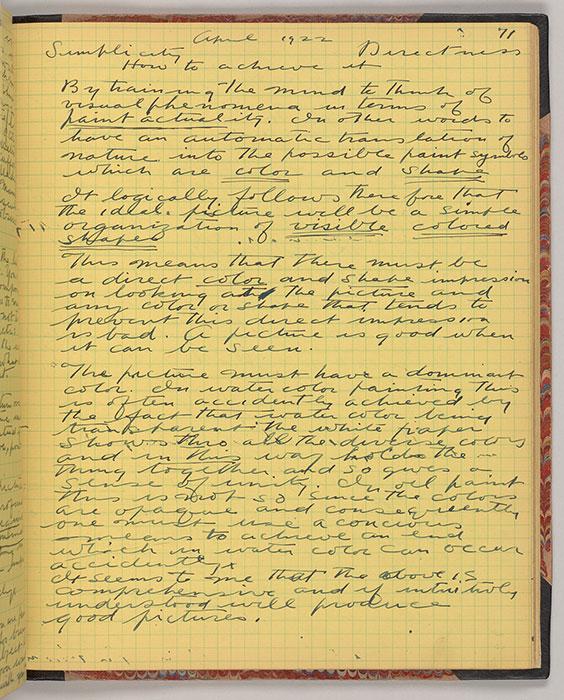 71
April 1922
Simplicity Directness
How to achieve it
By training the mind to think of
visual phenomena in terms of
paint actuality. In other words to
have an automatic translation of
nature into the possible paint symbols
which are color and shape
It logically follows therefore that
the ideal picture will be a simple
organization of visible colored
shapes
This means that there must be
a direct color and shape impression
on looking at the picture and
any color or shape that tends to
prevent this direct impression
is bad. A picture is good when
it can be seen.
The picture must have a dominant
color. In water color painting this
is often accidently achieved by
the fact that water color being
transparent the white paper
shows thro all the diverse colors
and in this way holds the
thing together and so gives a
sense of unity. In oil paint
this is not so since the colors
are opaque and consequently
one must use a concious
means to achieve an end
which in water color can occur
accidently
It seems to me that the above is
comprehensive and if intuitively
understood will produce
good pictures.